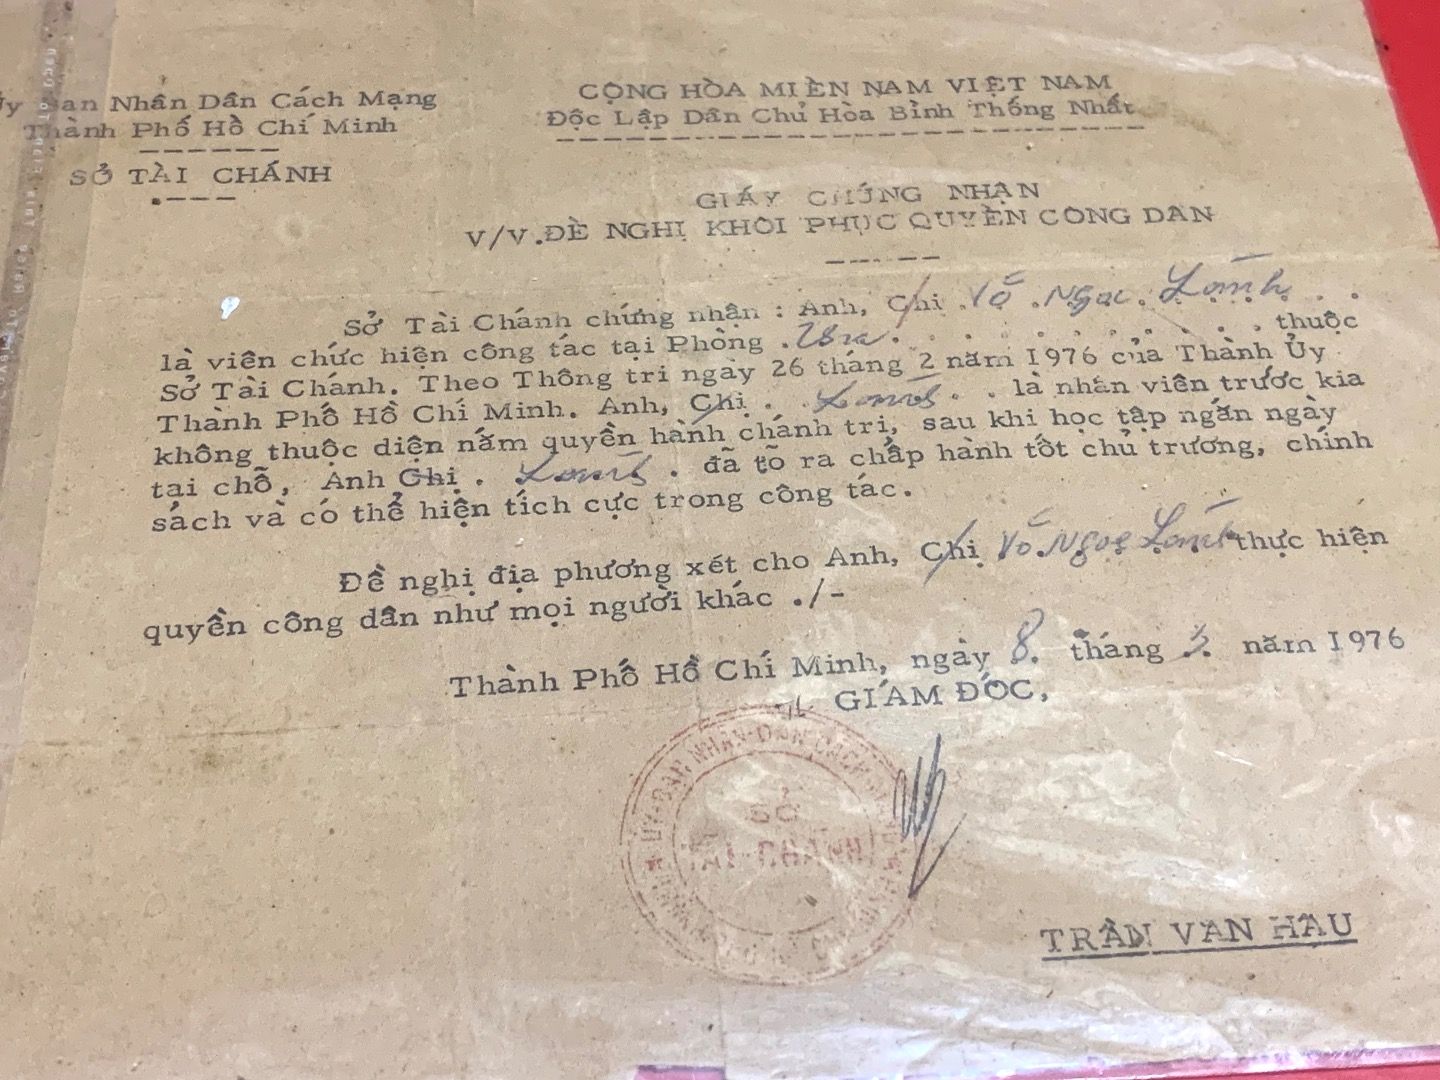 Ủy Ban Nhân Dân Cách Mạng
Thành Phố Hồ Chí Minh
SỞ TÀI CHÁNH
CỘNG HÒA MIỀN NAM VIỆT NAM
Độc Lập Dân Chủ Hòa Bình Thống Nhất
GIẤY CHỨNG NHẬN
V/V.ĐỀ NGHỊ KHÔI PHỤC QUYỀN CÔNG DÂN
Sở Tài Chánh chứng nhận : Anh, Chị Võ Ngọc
là viên chức hiện công tác tại Phòng thuộc
Sở Tài Chánh. Theo Thông tri ngày 26 tháng 2 năm 1976 của Thành Ủy
Thành Phố Hồ Chí Minh. Anh, Chị . . là nhân viên trước kia
không thuộc diện nắm quyền hành chánh trị, sau khi học tập ngắn ngày
tại chỗ, Anh Chị . . đã tỏ ra chấp hành tốt chủ trương, chính
sách và có thể hiện tích cực trong công tác.
Đề nghị địa phương xét cho Anh, Chị Võ Ngọc thực hiện
quyền công dân như mọi người khác ./-
Thành Phố Hồ Chí Minh, ngày 8 tháng 3 năm 1976
GIÁM ĐỐC,
ỦY-BAN NHÂN-DÂN CÁCH-MẠNG
SỞ
TÀI-CHÁNH
TRẦN VĂN HẬU